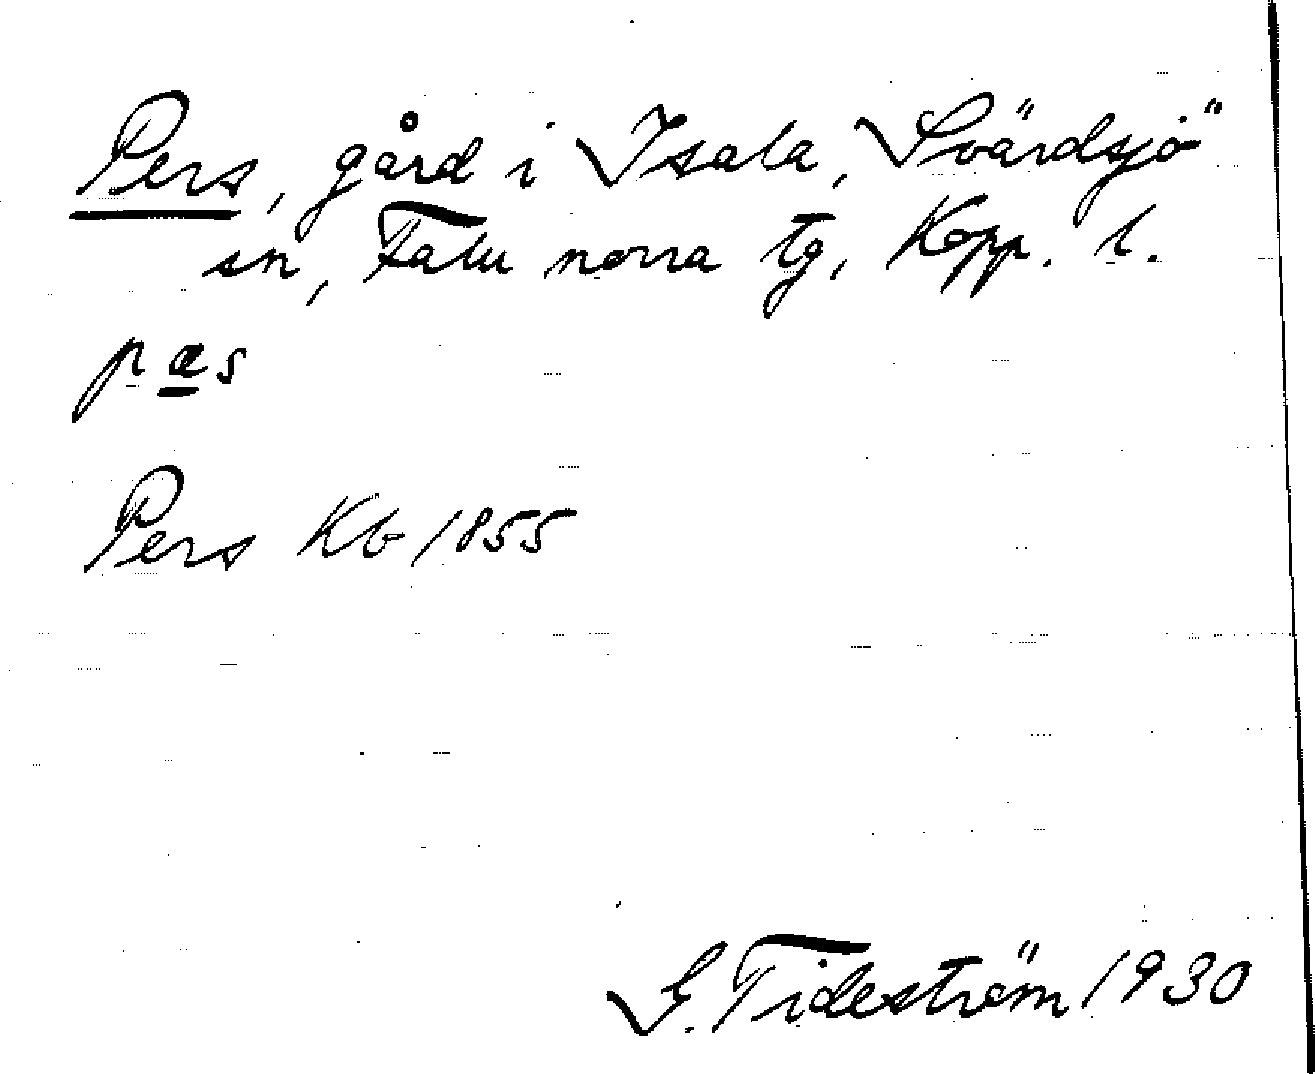 Pers, gård i Isala, Svärdsjö
sn, Falu norra tg, Kopp. l.
pæs
Pers Kb 1855
G. Tideström 1930